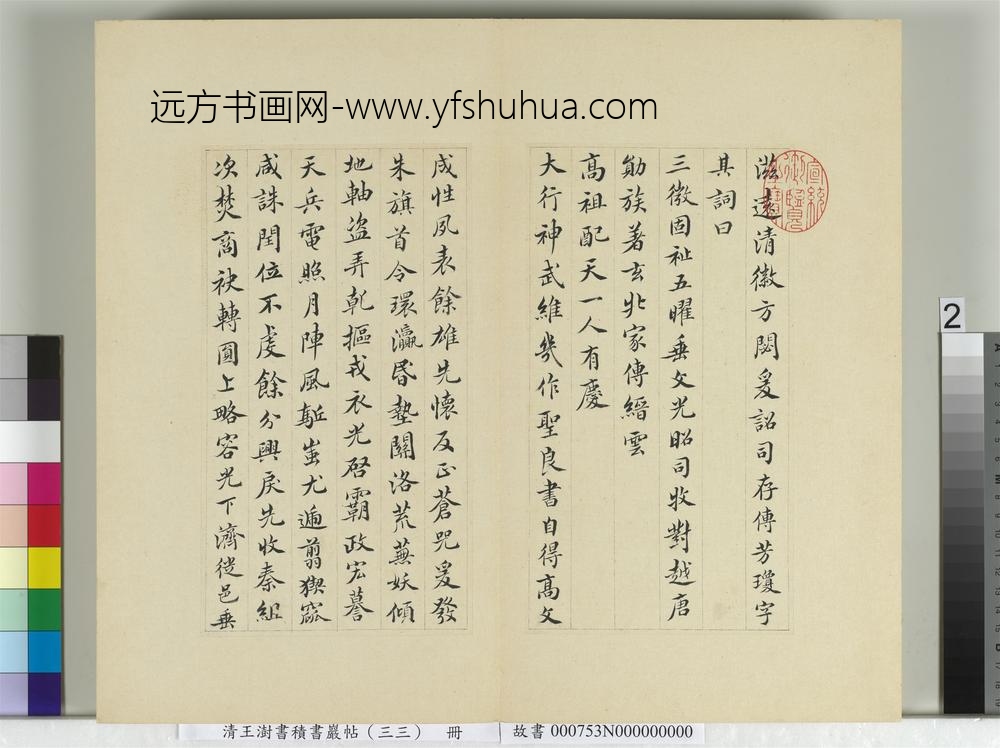 远方书画网-www.yfshuhua.com
滋遠清徽方閟爰詔司存傳芳瓊字
其詞曰
三微固祉五曜垂文光昭司牧對越唐
勛族著玄丠家傳縉雲
高祖配天一人有慶
大行神武維幾作聖良書自得高文
成性夙表餘雄先懷反正蒼兕爰發
朱旗首令環瀛昏墊關洛荒蕪妖傾
地軸盜弄乾樞戎衣光啓霸政宏謩
天兵電照月陣風驅蚩尤遄翦猰窳
咸誅閏位不虔餘分興戾先收秦組
次焚商袂轉圓上略容光下濟從邑垂
宣統御覽
2
清王澍書積書巖帖(三三) 冊
故書 000753N000000000